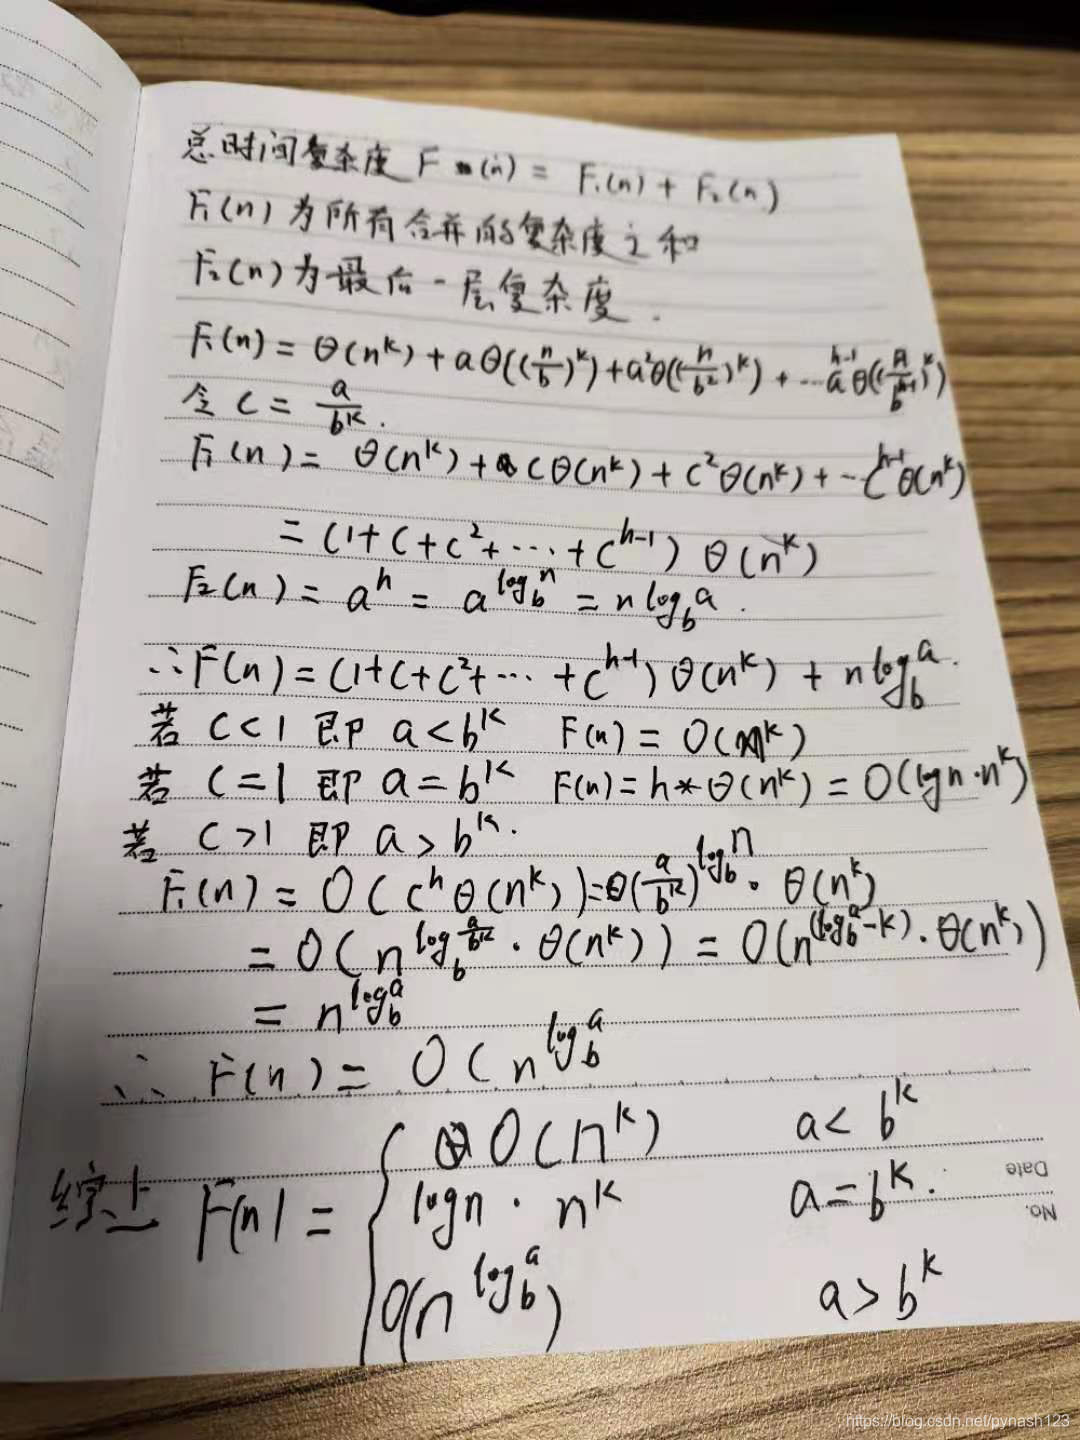 总时间复杂度 F (n) = F₁(n) + F₂(n)
F₁(n) 为所有合并的复杂度之和
F₂(n) 为最后一层复杂度.
F₁(n) = θ(n^k) + aθ((n/b)^k) + a²θ((n/b²)^k) + ... a^(h-1) θ((n/b^(h-1))^k)
令 C = a/b^k.
F₁(n) = θ(n^k) + Cθ(n^k) + C²θ(n^k) + ... C^(h-1) θ(n^k)
= (1+C+C²+...+C^(h-1)) θ(n^k)
F₂(n) = a^h = a^(log_b n) = n log_b a.
∴ F(n) = (1+C+C²+...+C^(h-1)) θ(n^k) + n log_b a.
若 C<1 即 a<b^k F(n) = O(n^k)
若 C=1 即 a=b^k F(n) = h*θ(n^k) = O(logn·n^k)
若 C>1 即 a>b^k.
F₁(n) = O(C^h θ(n^k)) = θ(a/b^k)^(log_b n) · θ(n^k)
= O(n^(log_b a/b^k) · θ(n^k)) = O(n^((log_b a)-k) · θ(n^k))
= n^(log_b a)
∴ F(n) = O(n^(log_b a)
综上 F(n) = { O(n^k) a<b^k
logn · n^k a=b^k.
O(n^(log_b a)) a>b^k
Date
No.
https://blog.csdn.net/pynash123